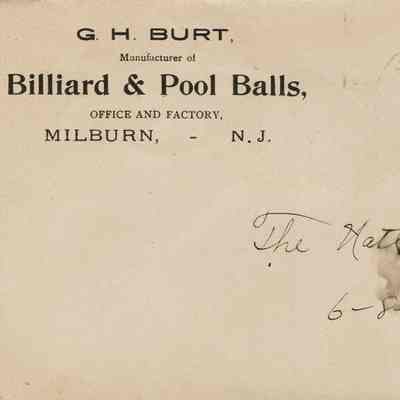 G. H. BURT,
Manufacturer of
Billiard & Pool Balls,
OFFICE AND FACTORY,
MILBURN, - N. J.
The
6-8-